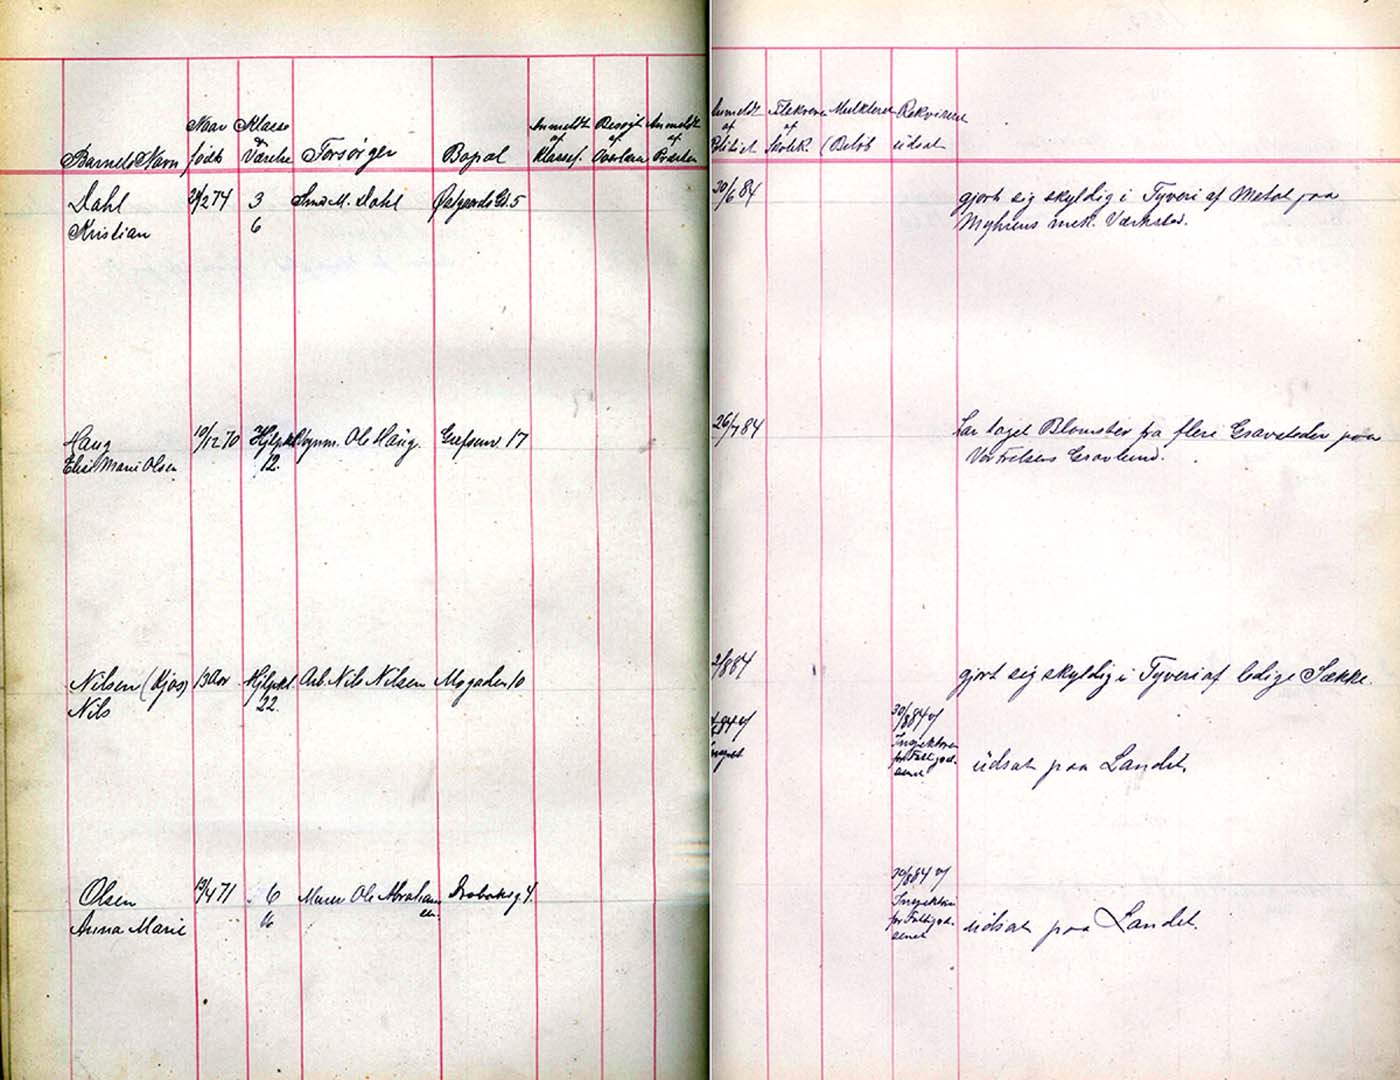 Barnets Navn
Naar
født
Klasse
&
Værelse
Forsørger
Bopæl
Anmeldt
af
Klassef.
Besøgt
af
Overlærer
Anmeldt
af
Præsten
Anmeldt
af
Politiet
af
Skolek.
Mulkteret
(Beløb
Rekvireret
udsat
Dahl
Kristian
2/274
3
6
M. Dahl
5
30/684
gjort sig skyldig i Tyveri af Metal paa
Myhrens mek. Værksted.
Haug
Elise Marie Olsen
10/1270
Hjlpkl
12.
Vognm. Ole Haug.
Grefsenv. 17
26/784
har taget Blomster fra flere Gravsteder paa
Vor Frelsers Gravlund.
Nilsen (Kjos)
Nils
13 Aar
Hjlpekl.
22.
Arb. Nils Nilsen
Mogaden 10
2/884
gjort sig skyldig i Tyveri af ledige Sække.
30/884 v/
Inspektøren
for Fattigvæ-
senet
udsat paa Landet.
Olsen
Anna Marie
13/471
6
16
Murer Ole Abraham
sen.
4.
30/884 v/
Inspektøren
for Fattigvæ-
senet
udsat paa Landet.